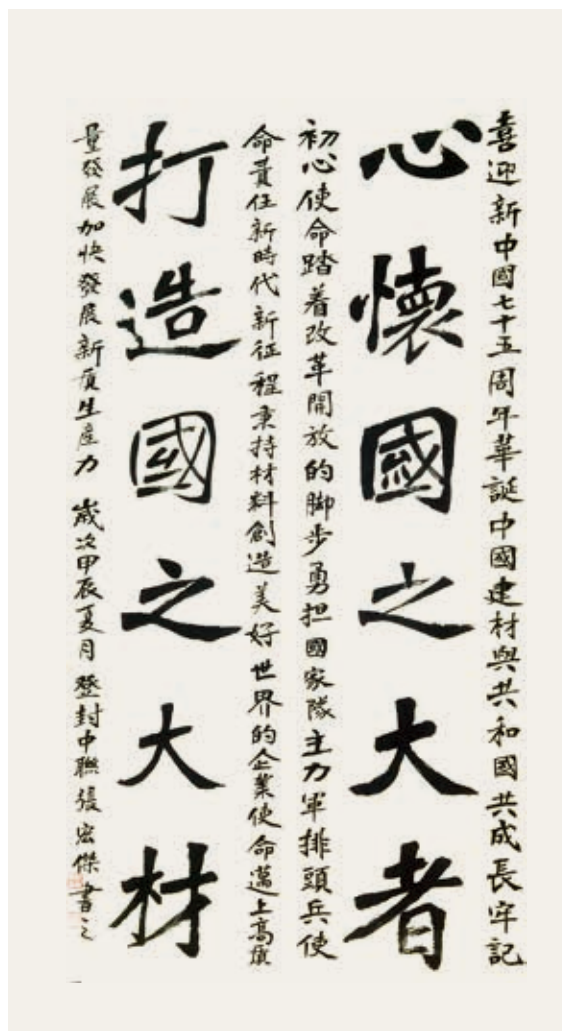 喜迎新中國七十五周年華誕中國建材與共和國共成長牢記
心懷國之大者
初心使命踏着改革開放的脚步勇担國家隊主力軍排頭兵使
命責任新時代新征程秉持材料創造美好世界的企業使命邁上高質
打造國之大材
量發展加快發展新质生産力 歲次甲辰夏月 登封中聯張宏傑書之